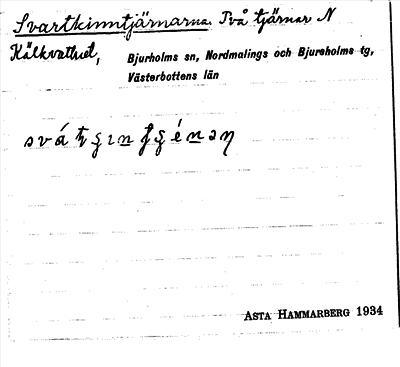 Svartkinntjärnarna. Två tjärnar N
Kälkvattnet,
Bjurholms sn, Nordmalings och Bjurholms tg,
Västerbottens län
ASTA HAMMARBERG 1934